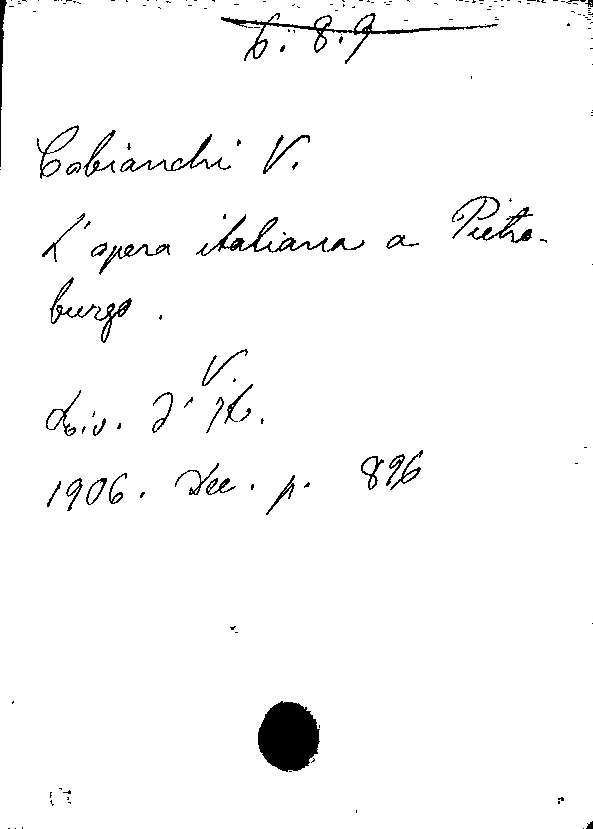 6. 8. 9
Cobianchi V.
L'opera italiana a Pietro-
burgo.
V.
Riv. d'It.
1906. Dec. p. 896